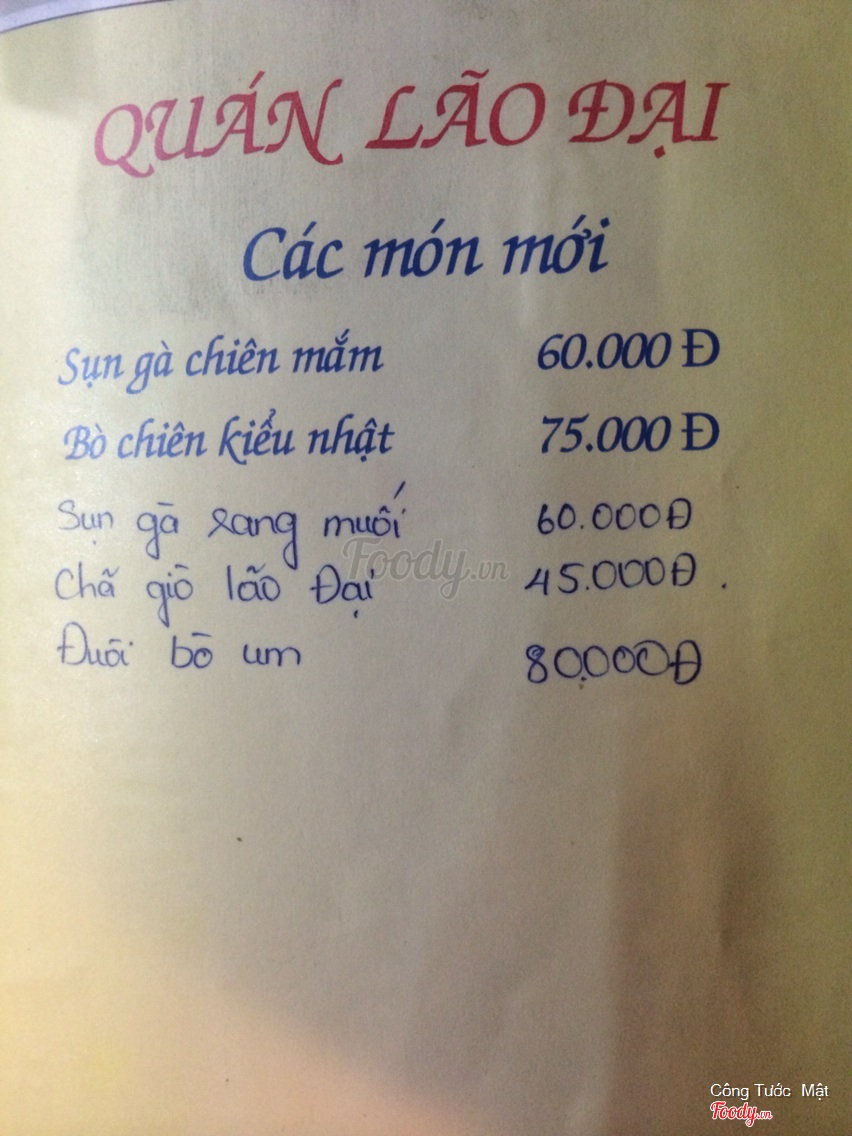 QUÁN LÃO ĐẠI
Các món mới
Sụn gà chiên mắm 60.000 Đ
Bò chiên kiểu nhật 75.000 Đ
Sụn gà rang muối 60.000Đ
Chã giò lão Đại 45.000Đ.
Đuôi bò um 80.000Đ
Foody.vn
Công Tước Mật
Foody.vn